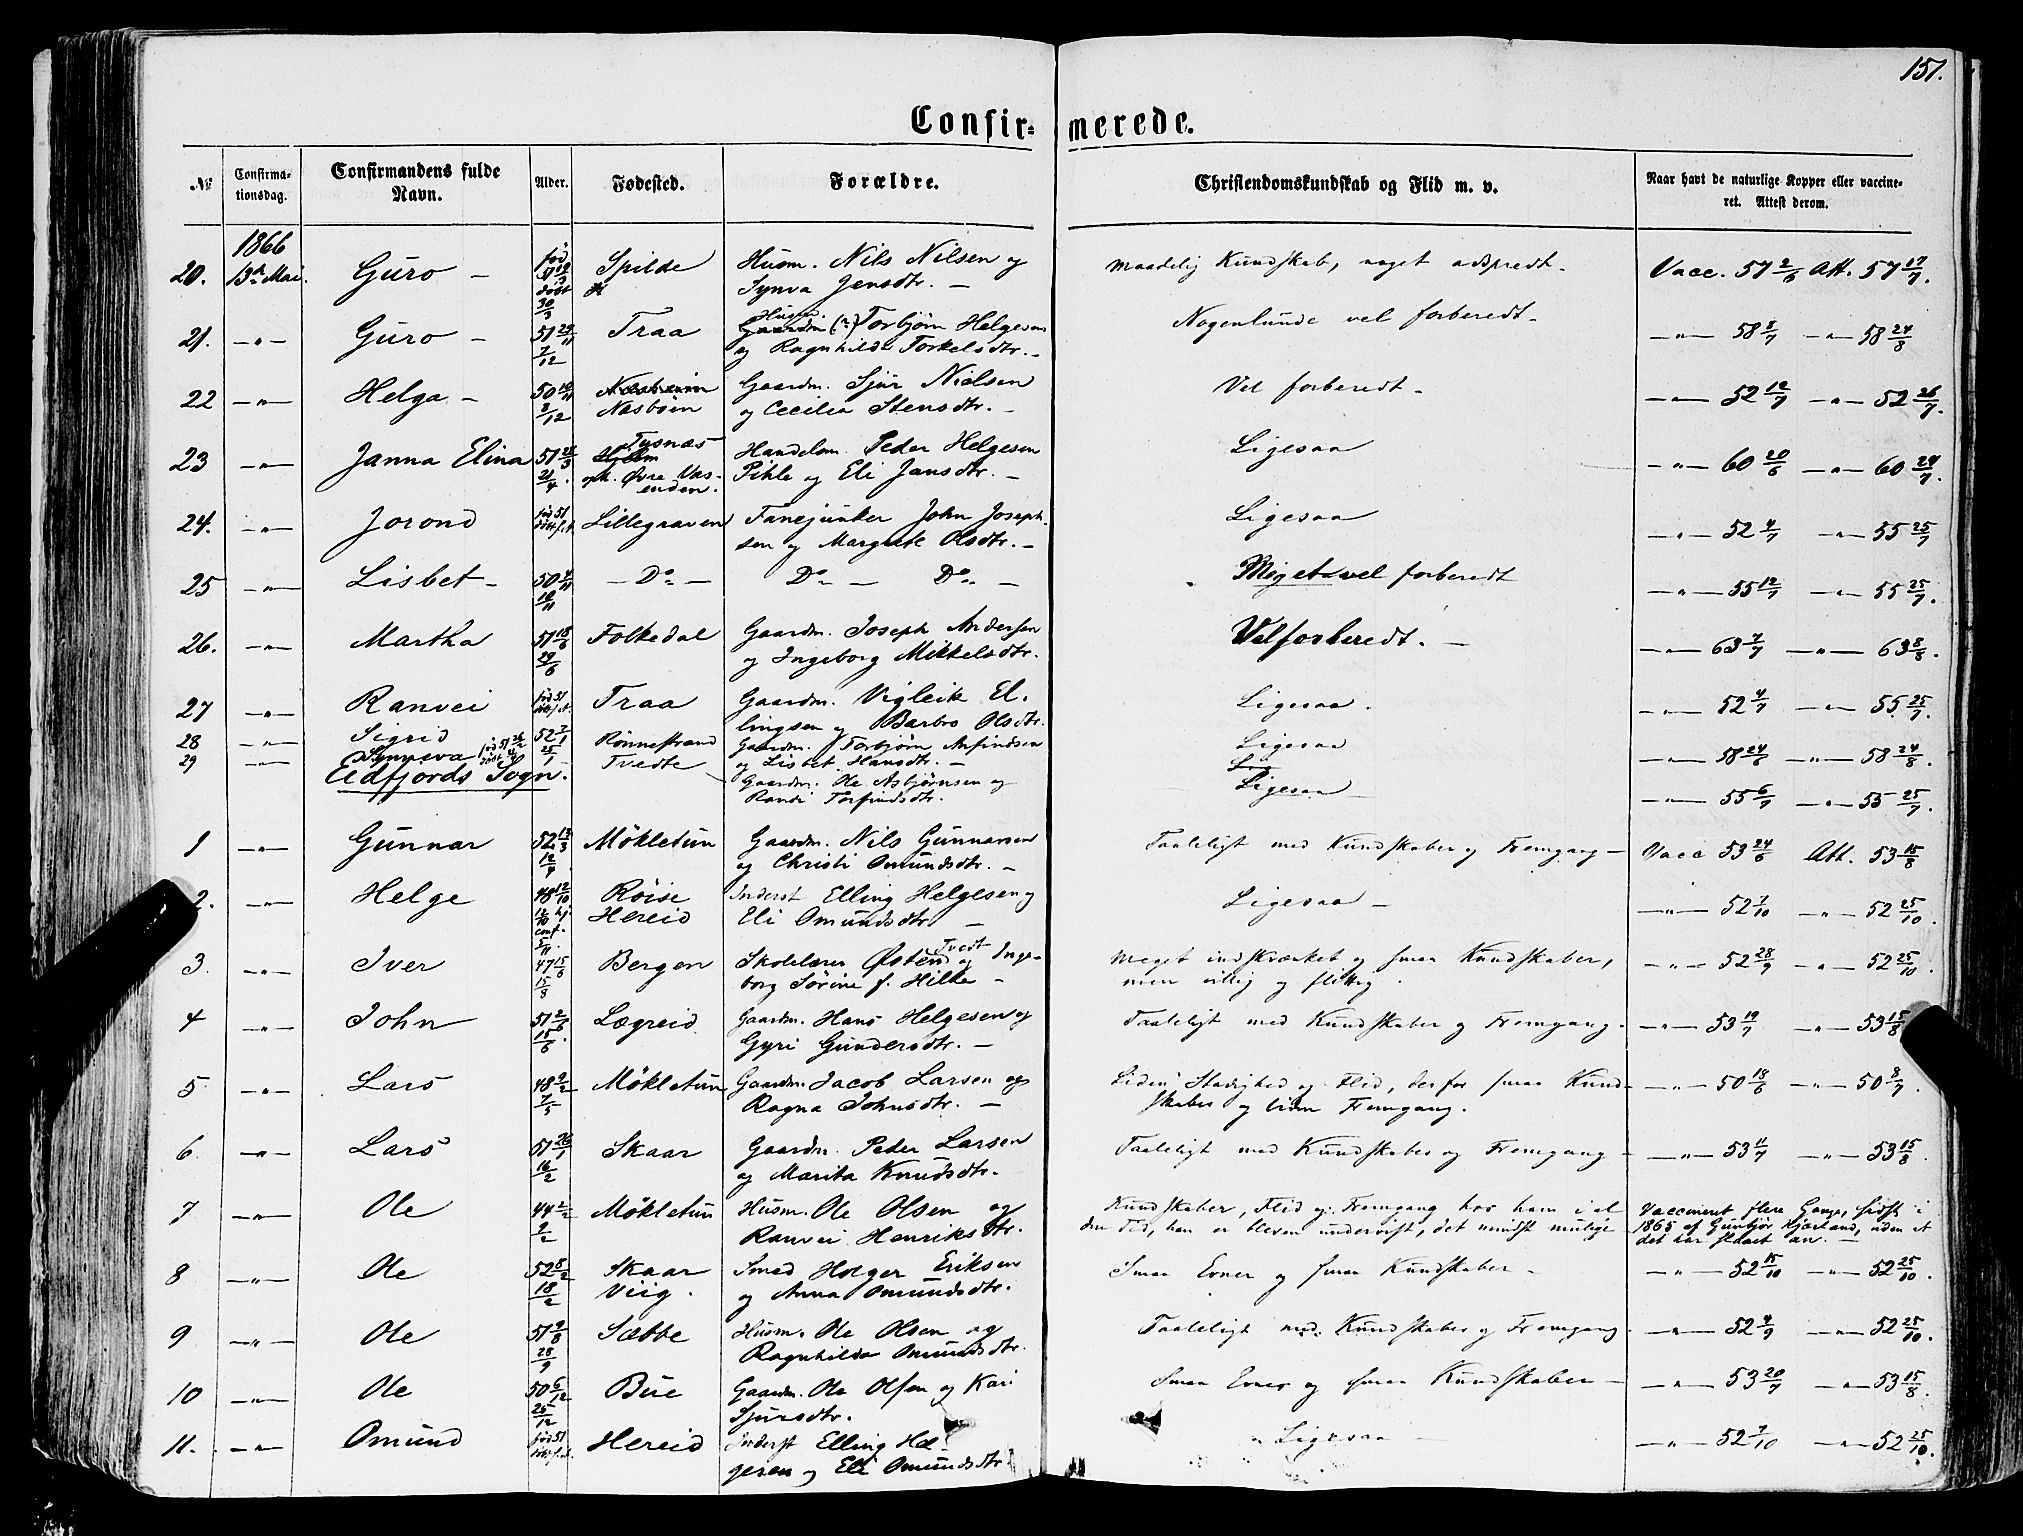 151.
Confir= merede.
№ Confirma- tionsdag. Confirmandens fulde Navn. Alder. Fødested. Forældre. Christendomskundskab og Flid m. v. Naar havt de naturlige Kopper eller vaccine-
ret. Attest derom.
1866
20. 13de Mai. Guro - fød 51 døbt 30/3 Spilde Husm. Nils Nilsen og Maadelig Kundskab, noget adspredt. Vacc. 57 2/6 Att. 57 17/7.
Synva Jensdtr. -
21. -"- Guro - 51 29/11 7/12 Traa Gaardm Torbjørn Helgesen Nogenlunde vel forberedt. -"- 58 8/7 -"- 58 24/8
og Ragnhilde Torkelsdtr. -
22 -"- Helga - 50 19/11 2/12 Næsbøen Gaardm. Sjur Nielsen Vel forberedt. -"- 52 12/7 -"- 52 26/7.
og Cecilia Stensdtr. -
23 -"- Janna Elina 51 Tysnæs Handelsm. Peder Helgesen Ligesaa -"- 60 20/6 -"- 60 24/7.
opk. Øvre Vas- enden. Pihle og Eli Jansdtr. -
24. -"- Jorond fød 51 Lillegraven Fanejunker John Joseph- Ligesaa -"- 52 4/7 -"- 55 25/7
sen og Margrete Olsdtr. -
25 -"- Lisbet - 50 4/11 10/11 - Do - Do - Do - Meget vel forberedt -"- 55 12/7 -"- 55 25/7.
26. -"- Martha 51 18/6 29/6 Folkedal Gaardm. Joseph Andersen Vel forberedt. - -"- 63 7/7 -"- 63 8/8.
og Ingeborg Mikkelsdtr.
27 -"- Ranvei fød 51 Traa Gaardm. Vigleik El- Ligesaa. -"- 52 4/7 -"- 55 25/7.
lingsen og Barbro Olsdtr.
28 -"- Sigrid 52 7/1 25/1 Rønnestrand Gaardm. Torbjørn Arfindsen Ligesaa -"- 58 24/6 -"- 58 24/8.
og Lisbet Hansdtr. -
29 -"- Synneva fød 51 Tvedte Gaardm. Ole Asbjørnsen og Ligesaa -"- 55 6/7 -"- 55 25/7.
Randi Torfindsdtr.
Eidfjords Sogn.
1 -"- Gunnar 52 13/3 12/4 Møkletun Gaardm. Nils Gunnarsen Taaleligt med Kundskaber og Fremgang - Vacc 53 24/6 Att. 53 15/8
og Christi Omundsdtr. -
2. -"- Helge 48 12/10 Røise Inderst Elling Helgesen og Ligesaa - -"- 52 7/10 -"- 52 25/10.
Hereid Eli Omundsdtr. -
3. -"- Iver 47 15/6 15/8 Bergen Skolelærer Østen Tvedt og Inge- Meget indskrænket og smaa Kundskaber, -"- 52 28/9 -"- 52 25/10.
borg Sørine f. Hilke - men villig og flittig.
4 -"- John 51 2/6 15/6. Lægreid Gaardm. Hans Helgesen og Taaleligt med Kundskaber og Fremgang. -"- 53 19/7 -"- 53 15/8
Gyri Gundersdtr. -
5 -"- Lars 48 9/2 7/5 Møkletun Gaardm. Jacob Larsen og Liden Stadighed og Flid, derfor smaa Kund- -"- 50 18/6 -"- 50 8/7.
Ragna Johnsdtr. - skaber og liden Fremgang.
6. -"- Lars 51 26/1 16/2 Skaar Gaardm. Peder Larsen Taaleligt med Kundskaber og Fremgang - -"- 53 4/7 -"- 53 15/8.
og Marita Knudsdtr.
7 -"- Ole 44 2/2 9/2 Møkletun Husm. Ole Olsen og Kundskaber, Flid og Fremgang hos ham i al Vaccineret flere Gange, sidst i
Ranvei Henriksdtr. den Tid, han er bleven undervist, det mindst mulige 1865 af Gunbjør Hjælland, uden at
det har slaaet an. -
8 -"- Ole 52 8/2 18/2 Skaar Smed Holger Eriksen Smaa Evner og smaa Kundskaber - -"- 52 15/10 -"- 52 25/10.
Viig. og Anna Omundsdtr.
9 -"- Ole 51 9/8 28/9 Sæbbe Husm. Ole Olsen og Taaleligt med Kundskaber og Fremgang. -"- 52 4/9 -"- 52 25/10.
Ragnhilda Omundsdtr.
10 -"- Ole 50 6/12 25/12 Bue Gaardm. Ole Olsen og Kari Smaa Evner og smaa Kundskaber - -"- 53 20/7 -"- 53 15/8.
Sjursdtr.
11. -"- Omund fød 51 Hereid Inderst Elling Hel- Ligesaa - -"- 52 7/10 -"- 52 25/10.
gesen og Eli Omundsdtr.